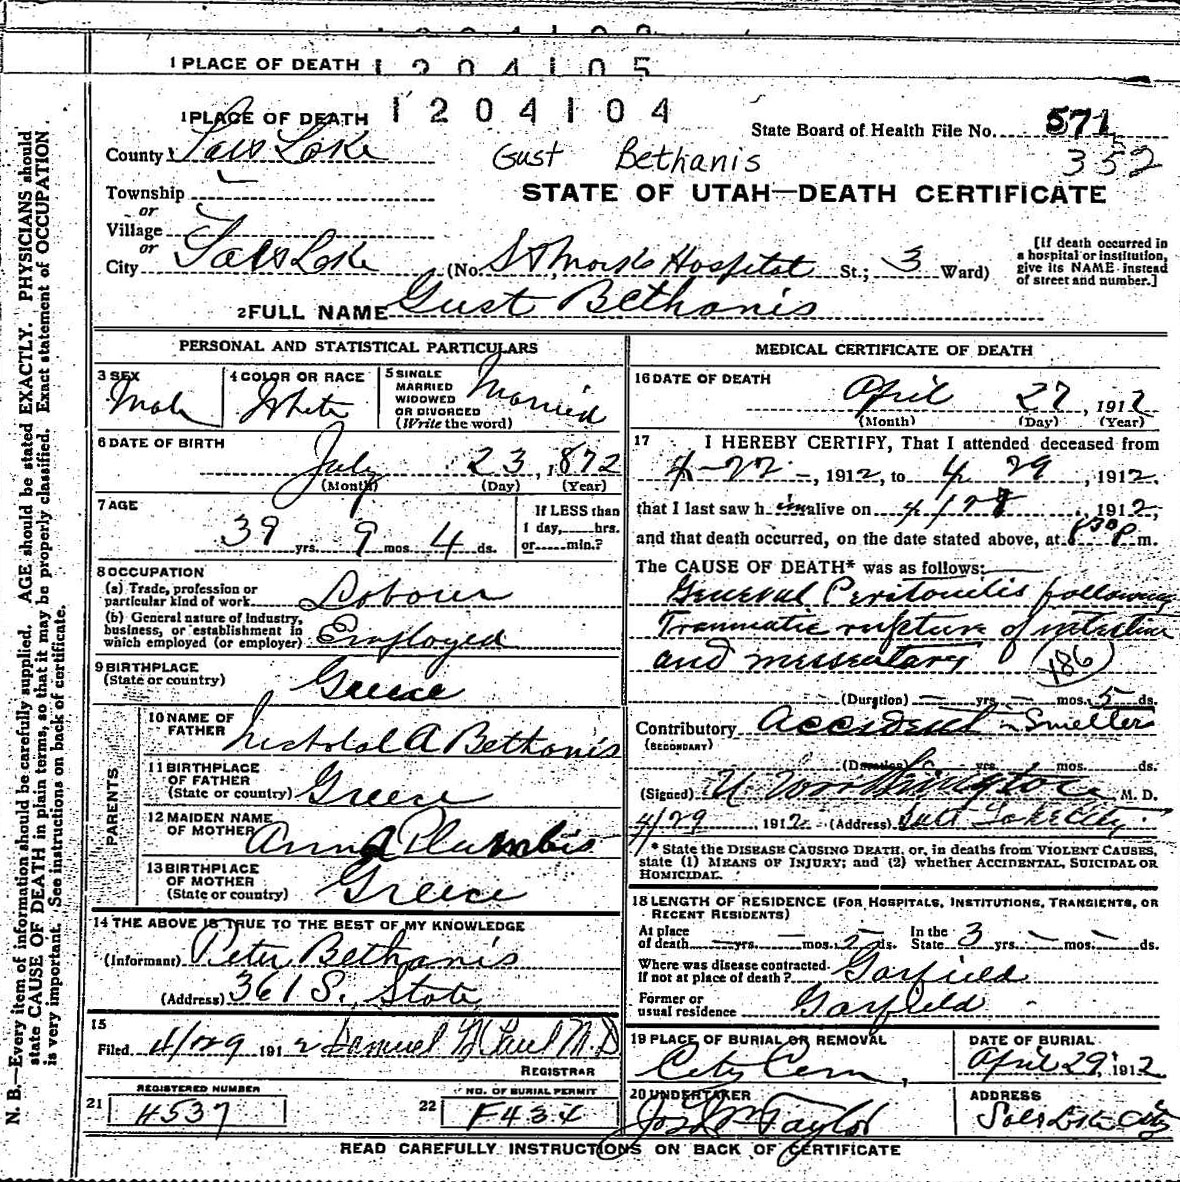 1 PLACE OF DEATH 1204105
1 PLACE OF DEATH 1204104
State Board of Health File No. 571
352
County Salt Lake
Gust Bethanis
Township
STATE OF UTAH—DEATH CERTIFICATE
or
Village
or
City Salt Lake (No. St Marks Hospital St.; 3 Ward)
[If death occurred in a hospital or institution, give its NAME instead of street and number.]
2 FULL NAME Gust Bethanis
PERSONAL AND STATISTICAL PARTICULARS
3 SEX Male
4 COLOR OR RACE White
5 SINGLE MARRIED WIDOWED OR DIVORCED (Write the word) Married
6 DATE OF BIRTH July 23, 1872
(Month) (Day) (Year)
7 AGE 39 yrs. 9 mos. 4 ds.
If LESS than 1 day, hrs. or min.?
8 OCCUPATION
(a) Trade, profession or particular kind of work Laborer
(b) General nature of industry, business, or establishment in which employed (or employer) Employed
9 BIRTHPLACE (State or country) Greece
PARENTS
10 NAME OF FATHER A Bethanis
11 BIRTHPLACE OF FATHER (State or country) Greece
12 MAIDEN NAME OF MOTHER Anna Plumbis
13 BIRTHPLACE OF MOTHER (State or country) Greece
14 THE ABOVE IS TRUE TO THE BEST OF MY KNOWLEDGE
(Informant) Peter Bethanis
(Address) 361 S. State
15
Filed 4/29 1912 Samuel G Paul M.D
REGISTRAR
21 REGISTERED NUMBER H537
22 NO. OF BURIAL PERMIT F434
MEDICAL CERTIFICATE OF DEATH
16 DATE OF DEATH April 27, 1912
(Month) (Day) (Year)
17 I HEREBY CERTIFY, That I attended deceased from
4-22-, 1912, to 4 29, 1912,
that I last saw him alive on 4/27, 1912,
and that death occurred, on the date stated above, at 8 30 P. m.
The CAUSE OF DEATH* was as follows:
General Peritonitis following
Traumatic rupture of intestine
and messentary (186)
(Duration) — yrs. — mos. 5 ds.
Contributory Accident - Smelter
(SECONDARY)
(Duration) yrs. mos. ds.
(Signed) U. Worthington M. D.
4/29, 1912 (Address) Salt Lake City.
* State the DISEASE CAUSING DEATH, or, in deaths from VIOLENT CAUSES, state (1) MEANS OF INJURY; and (2) whether ACCIDENTAL, SUICIDAL OR HOMICIDAL.
18 LENGTH OF RESIDENCE (FOR HOSPITALS, INSTITUTIONS, TRANSIENTS, OR RECENT RESIDENTS)
At place of death — yrs. — mos. 5 ds. In the State 3 yrs. — mos. — ds.
Where was disease contracted, If not at place of death? Garfield
Former or usual residence Garfield
19 PLACE OF BURIAL OR REMOVAL City Cem,
DATE OF BURIAL April 29, 1912
20 UNDERTAKER Jos Wm Taylor
ADDRESS Salt Lake City
READ CAREFULLY INSTRUCTIONS ON BACK OF CERTIFICATE
N. B.—Every item of information should be carefully supplied. AGE should be stated EXACTLY. PHYSICIANS should
state CAUSE OF DEATH in plain terms, so that it may be properly classified. Exact statement of OCCUPATION
is very important. See instructions on back of certificate.